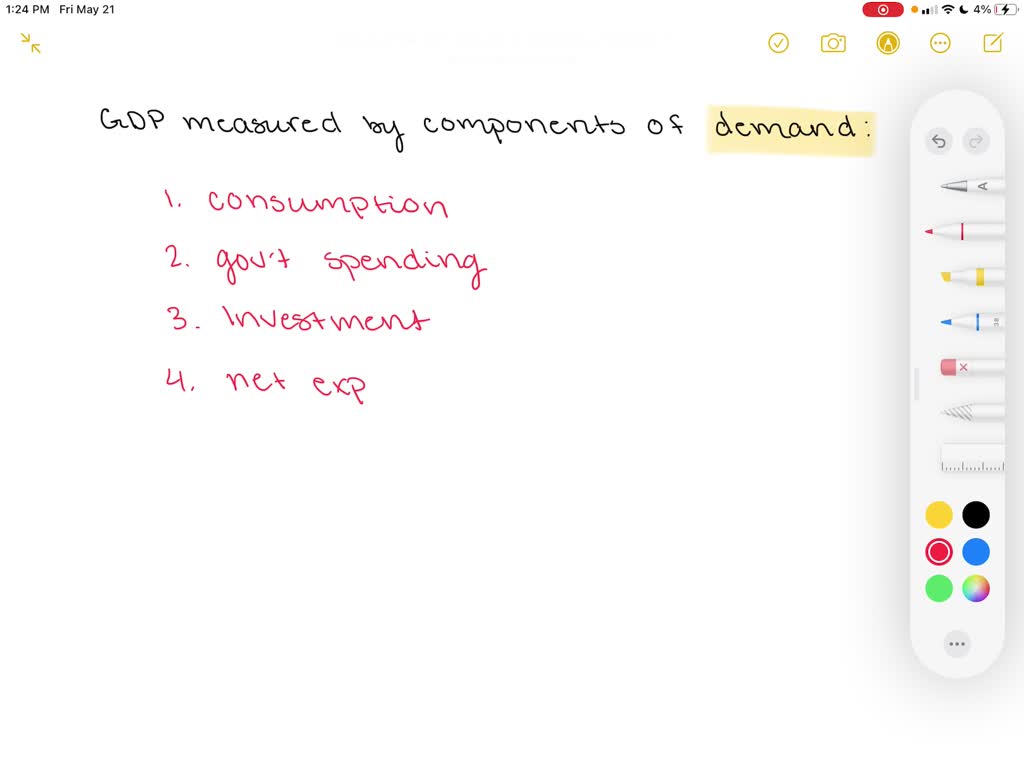 1:24 PM Fri May 21 4%
GDP measured by components of demand:
1. consumption
2. gov't spending
3. Investment
4. net exp
A
38